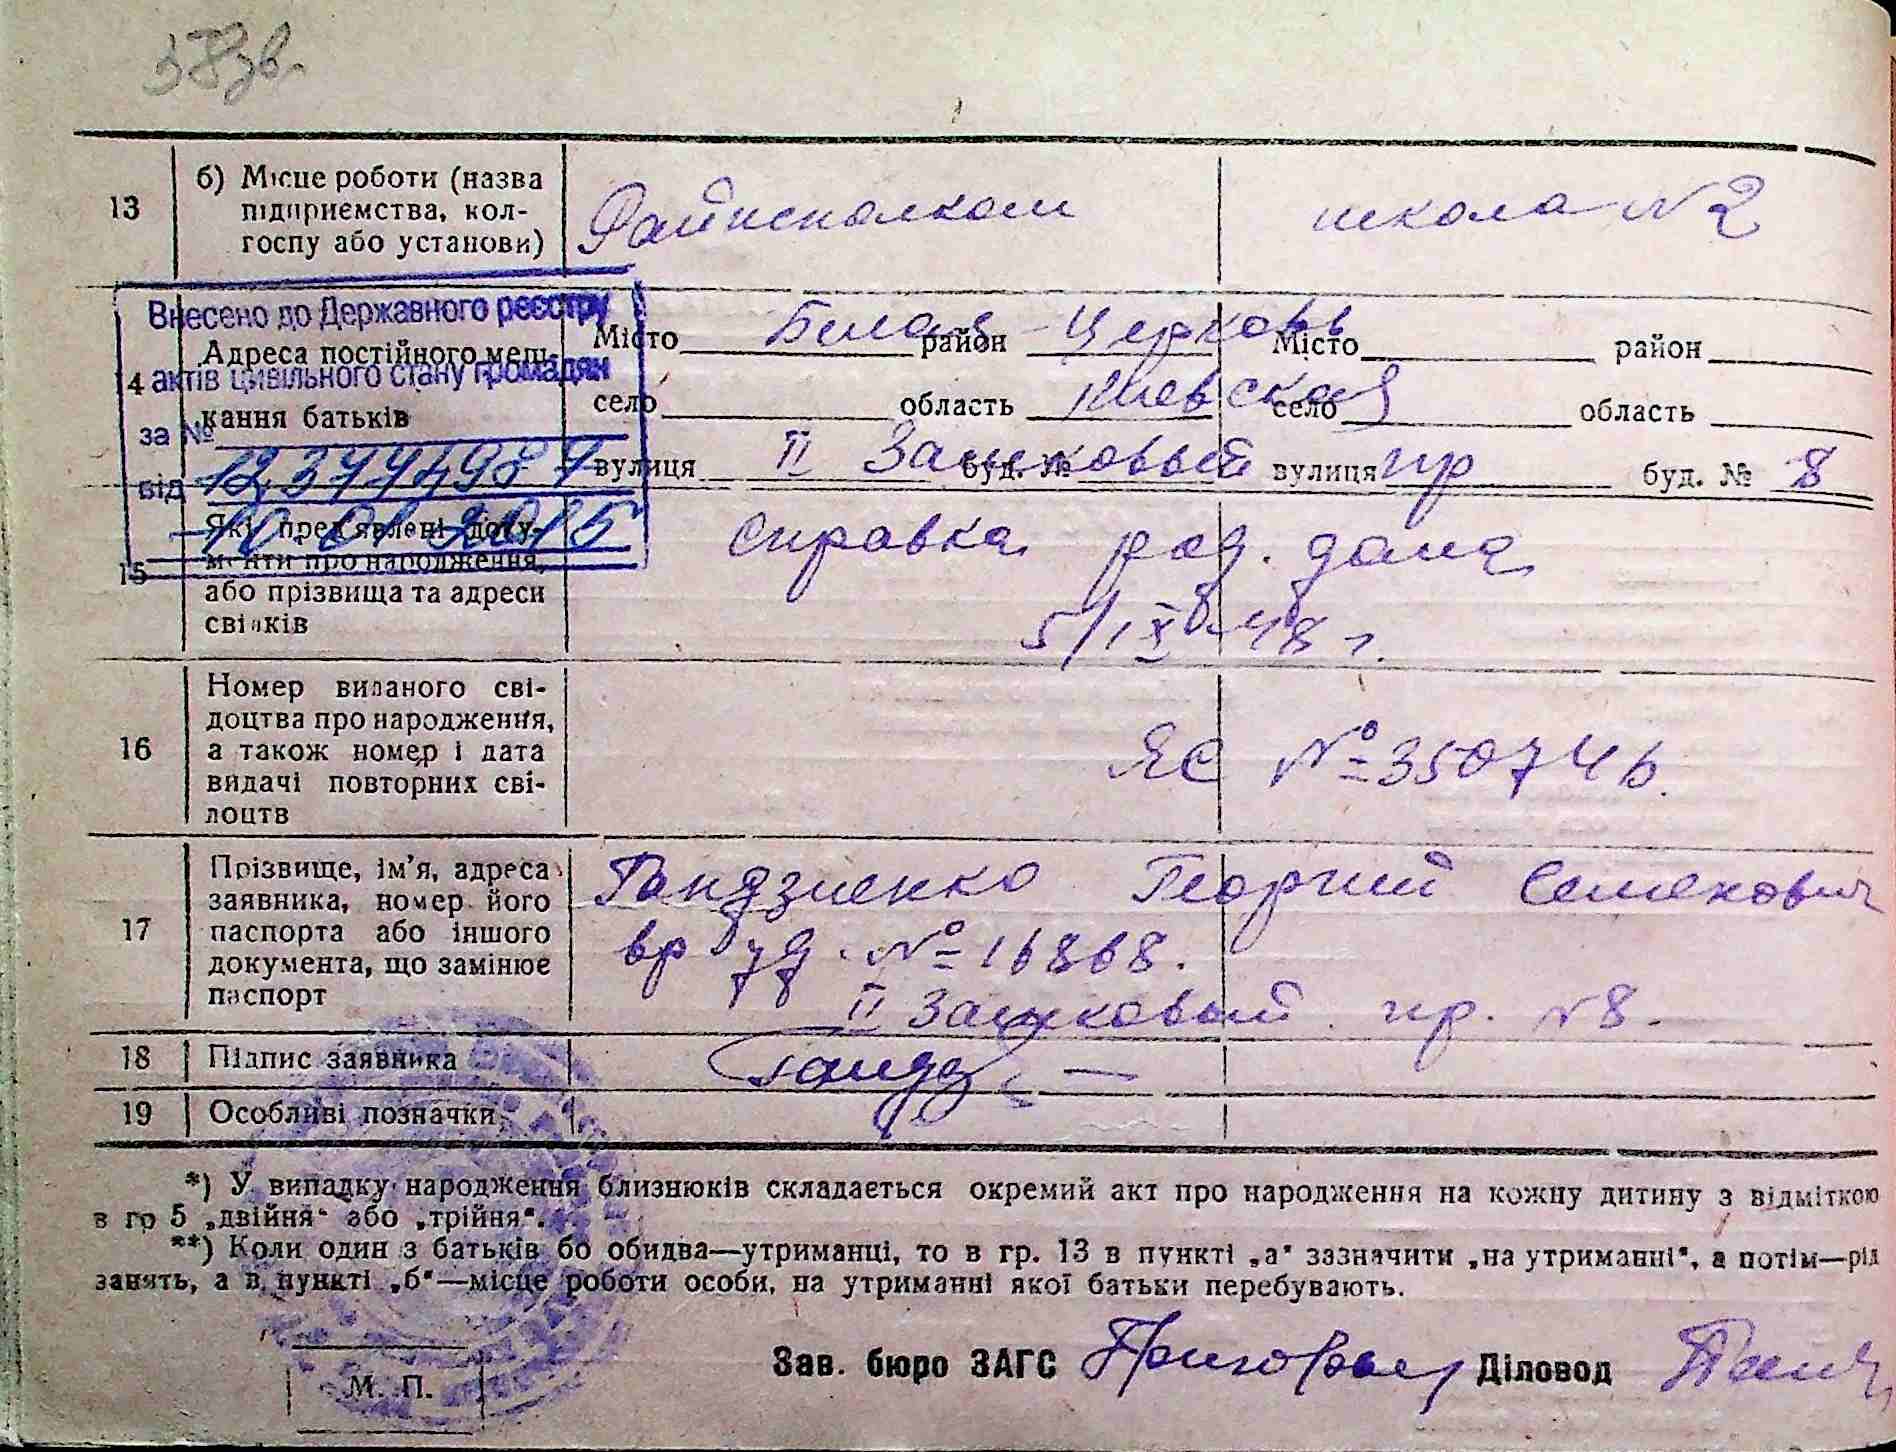 13
б) Місце роботи (назва
підприємства, кол-
госпу або установи)
Райисполком
школа N 2
Внесено до Державного реєстру
актів цивільного стану громадян
за №
12377498
від
10 01 2015
14
Адреса постійного меш-
кання батьків
Місто Белая-Церковь район
село область Киевская
вулиця II Замковый буд. №
Місто район
село область
вулиця пр буд. № 8
15
Які пред'явлені доку-
менти про народження,
або прізвища та адреси
свідків
справка род. дома
5/IX 48 г.
16
Номер виданого сві-
доцтва про народження,
а також номер і дата
видачі повторних сві-
доцтв
ЯС № 350746.
17
Прізвище, ім'я, адреса
заявника, номер його
паспорта або іншого
документа, що замінює
паспорт
Гандзиенко Георгий Семенович
вр уд. № 16868.
II Замковый пр. N 8.
18
Підпис заявника
Гандз
19
Особливі позначки
*) У випадку народження близнюків складається окремий акт про народження на кожну дитину з відміткою
в гр 5 „двійня“ або „трійня“.
**) Коли один з батьків бо обидва—утриманці, то в гр. 13 в пункті „а“ зазначити „на утриманні“, а потім—рід
занять, а в пункті „б“—місце роботи особи, на утриманні якої батьки перебувають.
Зав. бюро ЗАГС
Діловод
М. П.